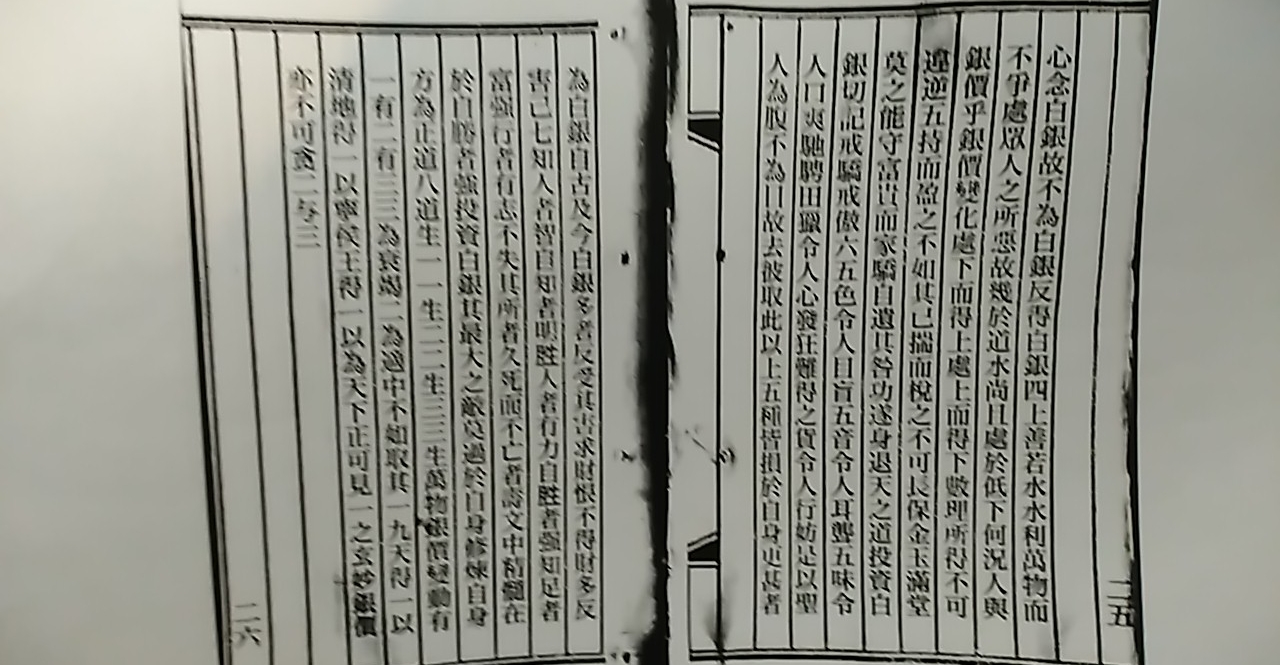 二五
心念白銀故不為白銀反得白銀四上善若水水利萬物而
不爭處眾人之所惡故幾於道水尚且處於低下何況人與
銀價乎銀價變化處下而得上處上而得下數理所得不可
違逆五持而盈之不如其已揣而梲之不可長保金玉滿堂
莫之能守富貴而家驕自遺其咎功遂身退天之道投資白
銀切記戒驕戒傲六五色令人目盲五音令人耳聾五味令
人口爽馳騁田獵令人心發狂難得之貨令人行妨是以聖
人為腹不為目故去彼取此以上五種皆損於自身更甚者
為白銀自古及今白銀多者反受其害求財恨不得財多反
害己七知人者皆自知者明胜人者有力自胜者強知足者
富強行者有志不失其所者久死而不亡者壽文中精髓在
於自勝者強投資白銀其最大之敵莫過於自身修煉自身
方為正道八道生一一生二二生三三生萬物銀價變動有
一有二有三三為衰竭二為適中不如取其一九天得一以
清地得一以寧侯王得一以為天下正可見一之玄妙銀價
亦不可貪二与三
二六